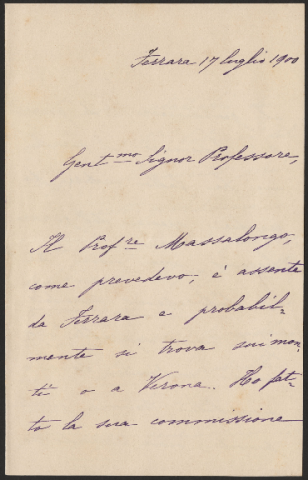 Ferrara 17 luglio 1900
Gent.mo Signor Professore,
Il Prof.re Massalongo,
come prevedevo, è assente
da Ferrara e probabil-
mente si trova sui mon-
ti o a Verona. Ho fat-
to la sua commissione